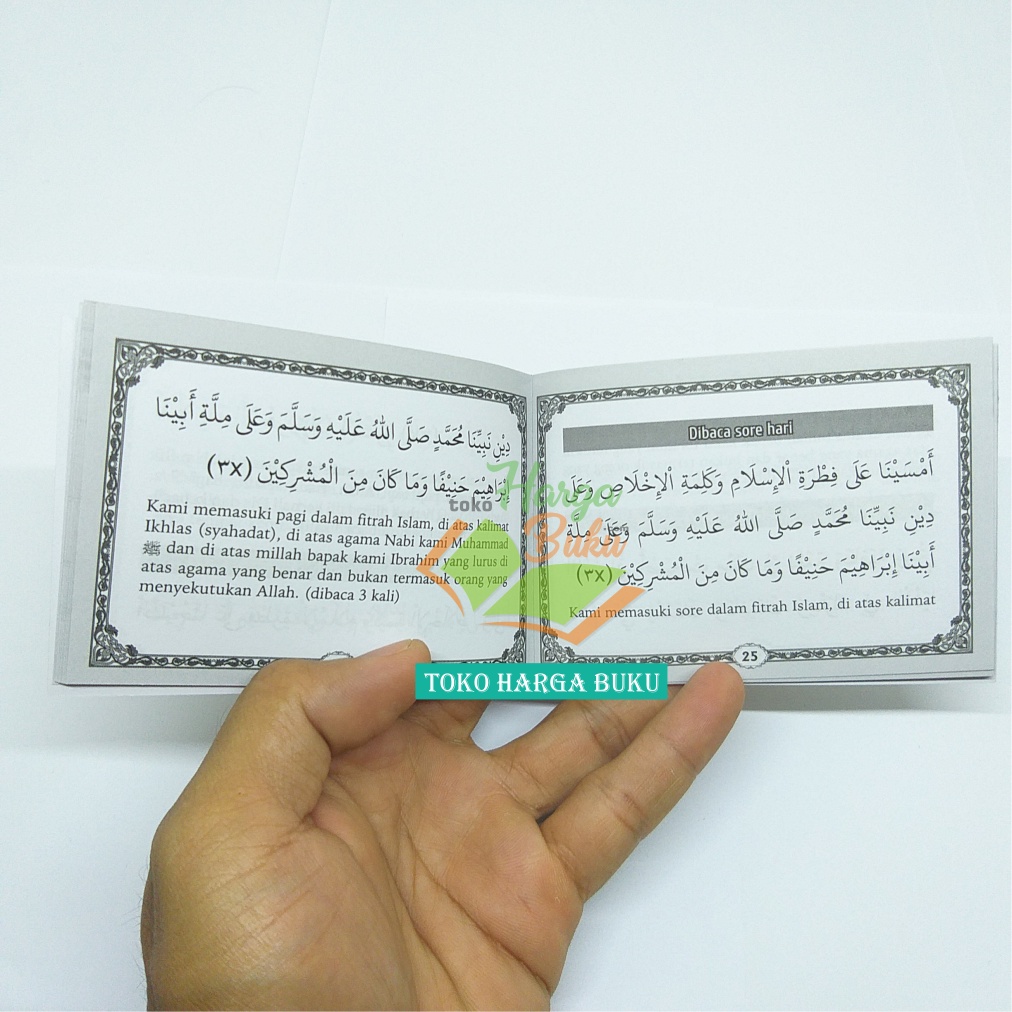 دِيْنِ نَبِيِّنَا مُحَمَّدٍ صَلَّى اللهُ عَلَيْهِ وَسَلَّمَ وَعَلَى مِلَّةِ أَبِيْنَا
إِبْرَاهِيْمَ حَنِيْفًا وَمَا كَانَ مِنَ الْمُشْرِكِيْنَ (٣x)
Kami memasuki pagi dalam fitrah Islam, di atas kalimat
Ikhlas (syahadat), di atas agama Nabi kami Muhammad
ﷺ dan di atas millah bapak kami Ibrahim yang lurus di
atas agama yang benar dan bukan termasuk orang yang
menyekutukan Allah. (dibaca 3 kali)
Dibaca sore hari
أَمْسَيْنَا عَلَى فِطْرَةِ اْلإِسْلَامِ وَكَلِمَةِ اْلإِخْلَاصِ وَعَلَى
دِيْنِ نَبِيِّنَا مُحَمَّدٍ صَلَّى اللهُ عَلَيْهِ وَسَلَّمَ وَعَلَى مِلَّةِ
أَبِيْنَا إِبْرَاهِيْمَ حَنِيْفًا وَمَا كَانَ مِنَ الْمُشْرِكِيْنَ (٣x)
Kami memasuki sore dalam fitrah Islam, di atas kalimat
25
toko Harga
Buku
TOKO HARGA BUKU